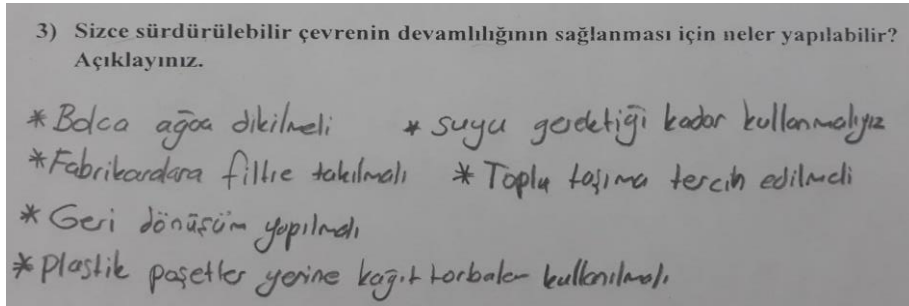 3) Sizce sürdürülebilir çevrenin devamlılığının sağlanması için neler yapılabilir?
Açıklayınız.
* Bolca ağaç dikilmeli * suyu gerektiği kadar kullanmalıyız
* Fabrikardara filtre takılmalı * Toplu taşıma tercih edilmeli
* Geri dönüşüm yapılmalı
* Plastik poşetler yerine kağıt torbalar kullanılmalı